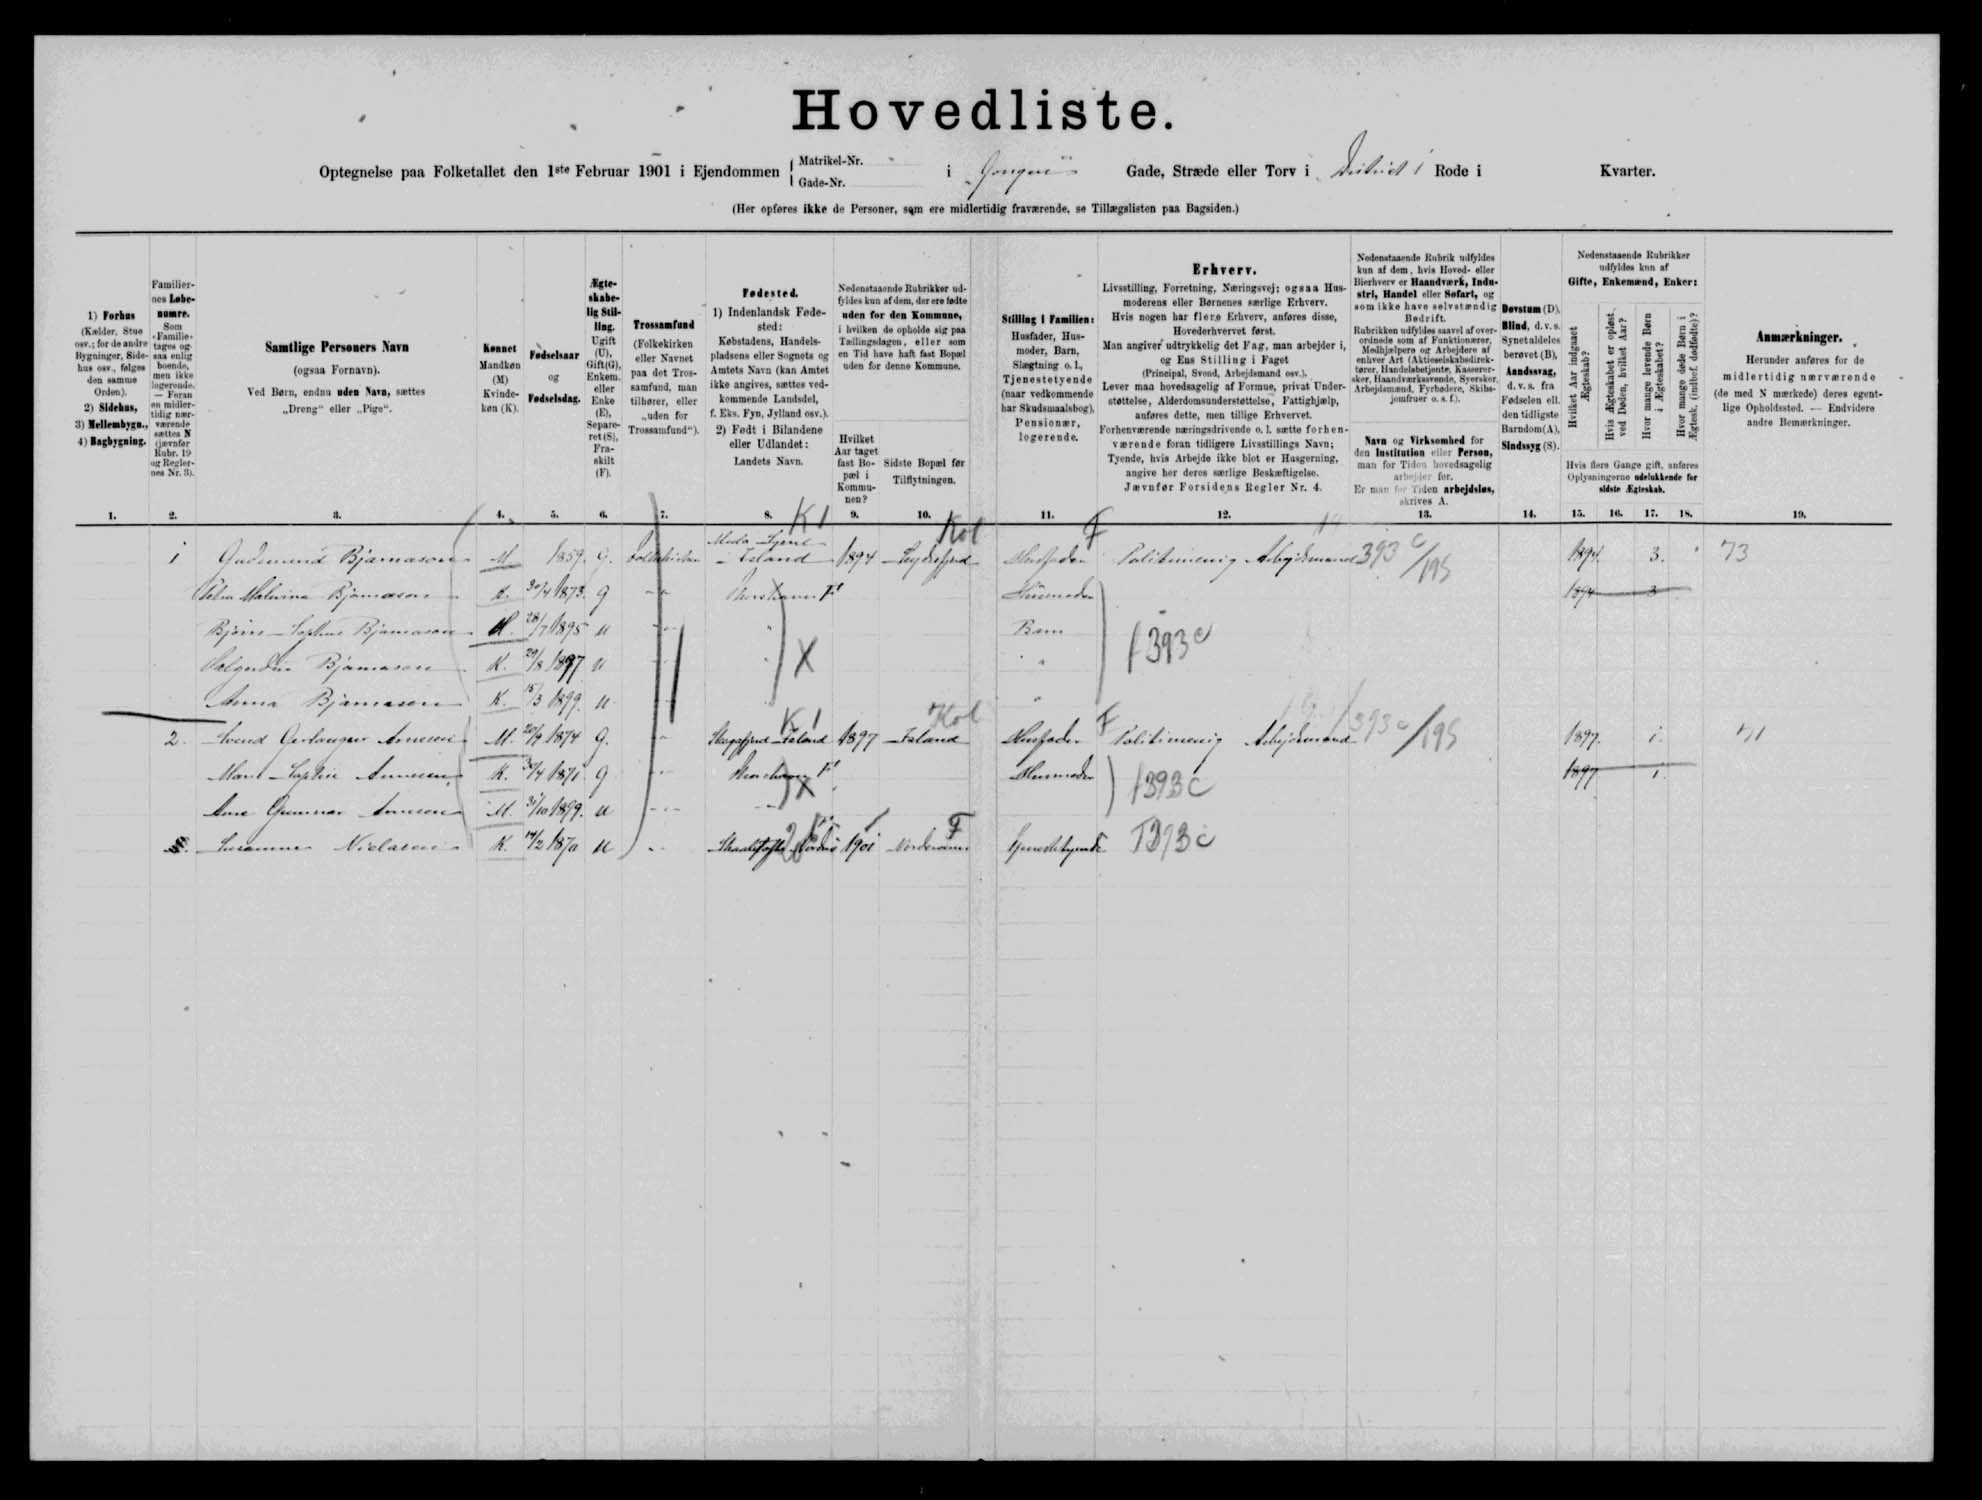 Hovedliste.
Optegnelse paa Folketallet den 1ste Februar 1901 i Ejendommen { Matrikel-Nr. Gade-Nr. i Gongen Gade, Stræde eller Torv i District 1 Rode i Kvarter.
(Her opføres ikke de Personer, som ere midlertidig fraværende, se Tillægslisten paa Bagsiden.)
1) Forhus
(Kælder, Stue
osv.; for de andre
Bygninger, Side-
hus osv., følges
den samme
Orden).
2) Sidehus,
3) Mellembygn.,
4) Bagbygning.
Familier-
nes Løbe-
numre.
Som
«Familie»
tages og-
saa enlig
boende,
men ikke
logerende.
— Foran
en midler-
tidig nær-
værende
sættes N
(jævnfør
Rubr. 19
og Regler-
nes Nr. 3).
Samtlige Personers Navn
(ogsaa Fornavn).
Ved Børn, endnu uden Navn, sættes
„Dreng“ eller „Pige“.
Kønnet
Mandkøn
(M)
Kvinde-
køn (K).
Fødselsaar
og
Fødselsdag.
Ægte-
skabe-
lig Stil-
ling.
Ugift
(U),
Gift(G),
Enkem.
eller
Enke
(E),
Separe-
ret(S),
Fra-
skilt
(F).
Trossamfund
(Folkekirken
eller Navnet
paa det Tros-
samfund, man
tilhører, eller
„uden for
Trossamfund“).
Fødested.
1) Indenlandsk Føde-
sted:
Købstadens, Handels-
pladsens eller Sognets og
Amtets Navn (kan Amtet
ikke angives, sættes ved-
kommende Landsdel,
f. Eks. Fyn, Jylland osv.).
2) Født i Bilandene
eller Udlandet:
Landets Navn.
Nedenstaaende Rubrikker ud-
fyldes kun af dem, der ere fødte
uden for den Kommune,
i hvilken de opholde sig paa
Tællingsdagen, eller som
en Tid have haft fast Bopæl
uden for denne Kommune.
Hvilket
Aar taget
fast Bo-
pæl i
Kommu-
nen?
Sidste Bopæl før
Tilflytningen.
Stilling i Familien:
Husfader, Hus-
moder, Barn,
Slægtning o. l.,
Tjenestetyende
(naar vedkommende
har Skudsmaalsbog),
Pensionær,
logerende.
Erhverv.
Livsstilling, Forretning, Næringsvej; ogsaa Hus-
moderens eller Børnenes særlige Erhverv.
Hvis nogen har flere Erhverv, anføres disse,
Hovederhvervet først.
Man angiver udtrykkelig det Fag, man arbejder i,
og Ens Stilling i Faget
(Principal, Svend, Arbejdsmand osv.).
Lever maa hovedsagelig af Formue, privat Under-
støttelse, Alderdomsunderstøttelse, Fattighjælp,
anføres dette, men tillige Erhvervet.
Forhenværende næringsdrivende o. l. sætte forhen-
værende foran tidligere Livsstillings Navn;
Tyende, hvis Arbejde ikke blot er Husgerning,
angive her deres særlige Beskæftigelse.
Jævnfør Forsidens Regler Nr. 4.
Nedenstaaende Rubrik udfyldes
kun af dem, hvis Hoved- eller
Bierhverv er Haandværk, Indu-
stri, Handel eller Søfart, og
som ikke have selvstændig
Bedrift.
Rubrikken udfyldes saavel af over-
ordnede som af Funktionærer,
Medhjælpere og Arbejdere af
enhver Art (Aktieselskabsdirek-
tører, Handelsbetjente, Kasserer-
sker, Haandværkssvende, Syersker,
Arbejdsmænd, Fyrbødere, Skibs-
jomfruer o. s. f.).
Navn og Virksomhed for
den Institution eller Person,
man for Tiden hovedsagelig
arbejder for.
Er man for Tiden arbejdsløs,
skrives A.
Døvstum (D),
Blind, d. v. s.
Synet aldeles
berøvet (B),
Aandssvag,
d. v. s. fra
Fødselen ell.
den tidligste
Barndom(A),
Sindssyg (S).
Nedenstaaende Rubrikker
udfyldes kun af
Gifte, Enkemænd, Enker:
Hvilket Aar indgaaet Ægteskab?
Hvis Ægteskabet er opløst ved Døden, hvilket Aar?
Hvor mange levende Børn i Ægteskabet?
Hvor mange døde Børn i Ægtesk. (indbef. dødfødte)?
Hvis flere Gange gift, anføres
Oplysningerne udelukkende for
sidste Ægteskab.
Anmærkninger.
Herunder anføres for de
midlertidig nærværende
(de med N mærkede) deres egent-
lige Opholdssted. — Endvidere
andre Bemærkninger.
1. 2. 3. 4. 5. 6. 7. 8. 9. 10. 11. 12. 13. 14. 15. 16. 17. 18. 19.
K1 Kol F
1 Gudmund Bjarnason M 1859. G. Folkekirken Island 1894 Seydisfjord Husfader Politimenig Arbejdsmand 393 c/195 1894. 3. 73
Malvina Bjarnason K. 30/4 1873. G " Thorshavn F Husmoder 1894 3
Bjarni Sophus Bjarnason M. 28/7 1895 U " " Barn f 393 c
Bjarnason K. 29/8 1897 U " " X "
Anna Bjarnason K. 15/3 1899. U " "
K1 Kol F
2. Svend Arnesen M. 1874 G. " Skagafjord Island 1897 Island Husfader Politimenig Arbejdsmand 393 c/195 1897. 1. 71
Sophie Arnesen K. 1871 G " Thorshavn F Husmoder f 393 c 1897 1.
Arne Gunnar Arnesen M. 31/10 1899. U " " X
Susanne Niclasen K. 14/2 1870 U " 1901 F Tjenestetyende T 393 c